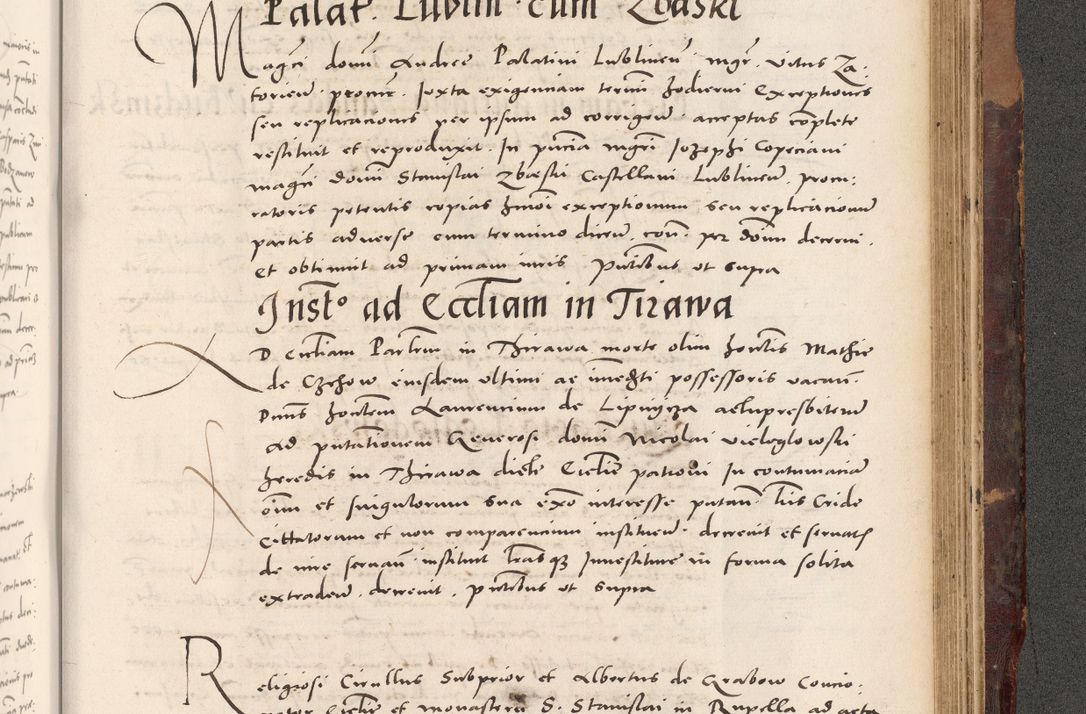 Palat. Lublin. cum Zbaski
Magci domi Andree Palatini Lublinen. mgr. Vitus Za,
torien. procur. Juxta exigenciam termi hodierni Exceptiones
seu replicaciones per ipsum ad corrigen. acceptas complete
restituit et reproduxit. In pncia mgri Josephi Copeciani
magci domi Stanislai Zbaski Castellani Lublinen. procu,
ratoris petentis copias hmoi exceptionum seu replicacionum
partis adverse cum termino dicen. con. per dom decerni.
et obtinuit ad primam iuris pntibus ut supra
Instō ad Eccliam in Tirawa
AD Eccliam Parlem in Thirawa morte olim honlis Mathie
de Czchow eiusdem ultimi ac immedti possessoris vacan.
Dnus honlem Laurencium de Lipnycza
Ad pntationem Generosi domi Nicolai Vieloglowski
heredis in Thirawa dicte Ecclie patroni In contumaciam
oim et singulorum sua exno interesse putan. lris Cride
Cittatorum et non comparencium instituen. decrevit et servatis
de iure servan. instituit lrasq. Investiture in forma solita
extraden. decrevit. pntibus ut supra
Religiosi Cirullus Subprior et Albertus de Grabow Concio,
nator Ecclie et monasterii S. Stanislai in Rupella ad acta